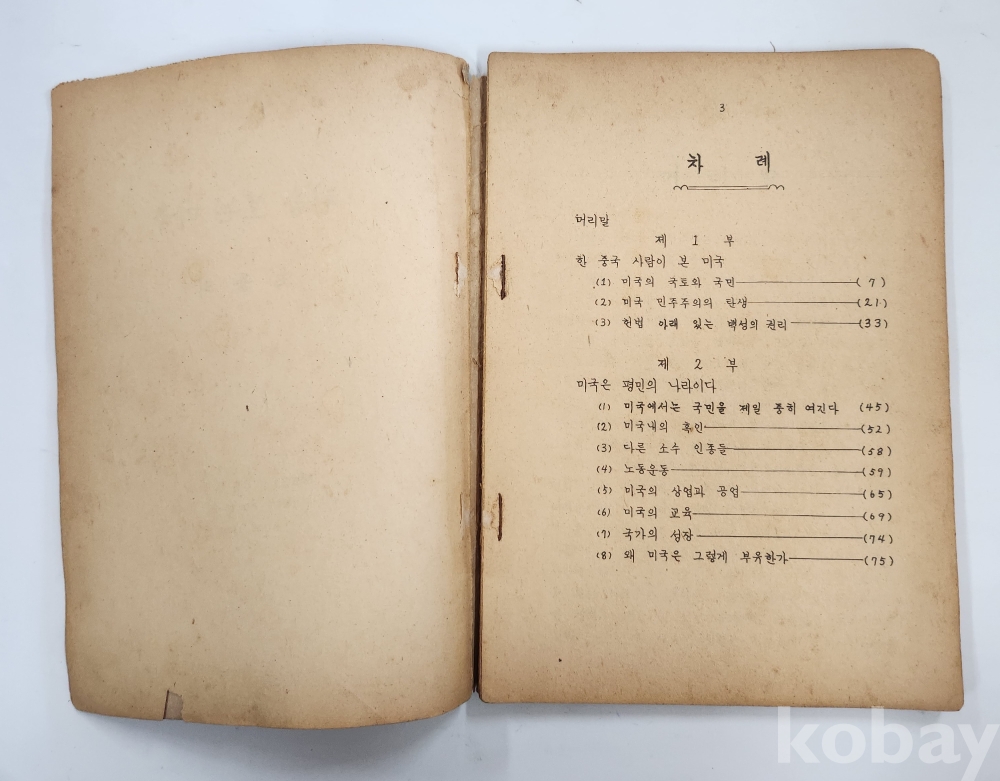 3
차 례
머리말
제 1 부
한 중국 사람이 본 미국
(1) 미국의 국토와 국민 (7)
(2) 미국 민주주의의 탄생 (21)
(3) 헌법 아래 있는 백성의 권리 (33)
제 2 부
미국은 평민의 나라이다
(1) 미국에서는 국민을 제일 중히 여긴다 (45)
(2) 미국내의 흑인 (52)
(3) 다른 소수 인종들 (58)
(4) 노동운동 (59)
(5) 미국의 상업과 공업 (65)
(6) 미국의 교육 (69)
(7) 국가의 성장 (74)
(8) 왜 미국은 그렇게 부유한가 (75)
kobay